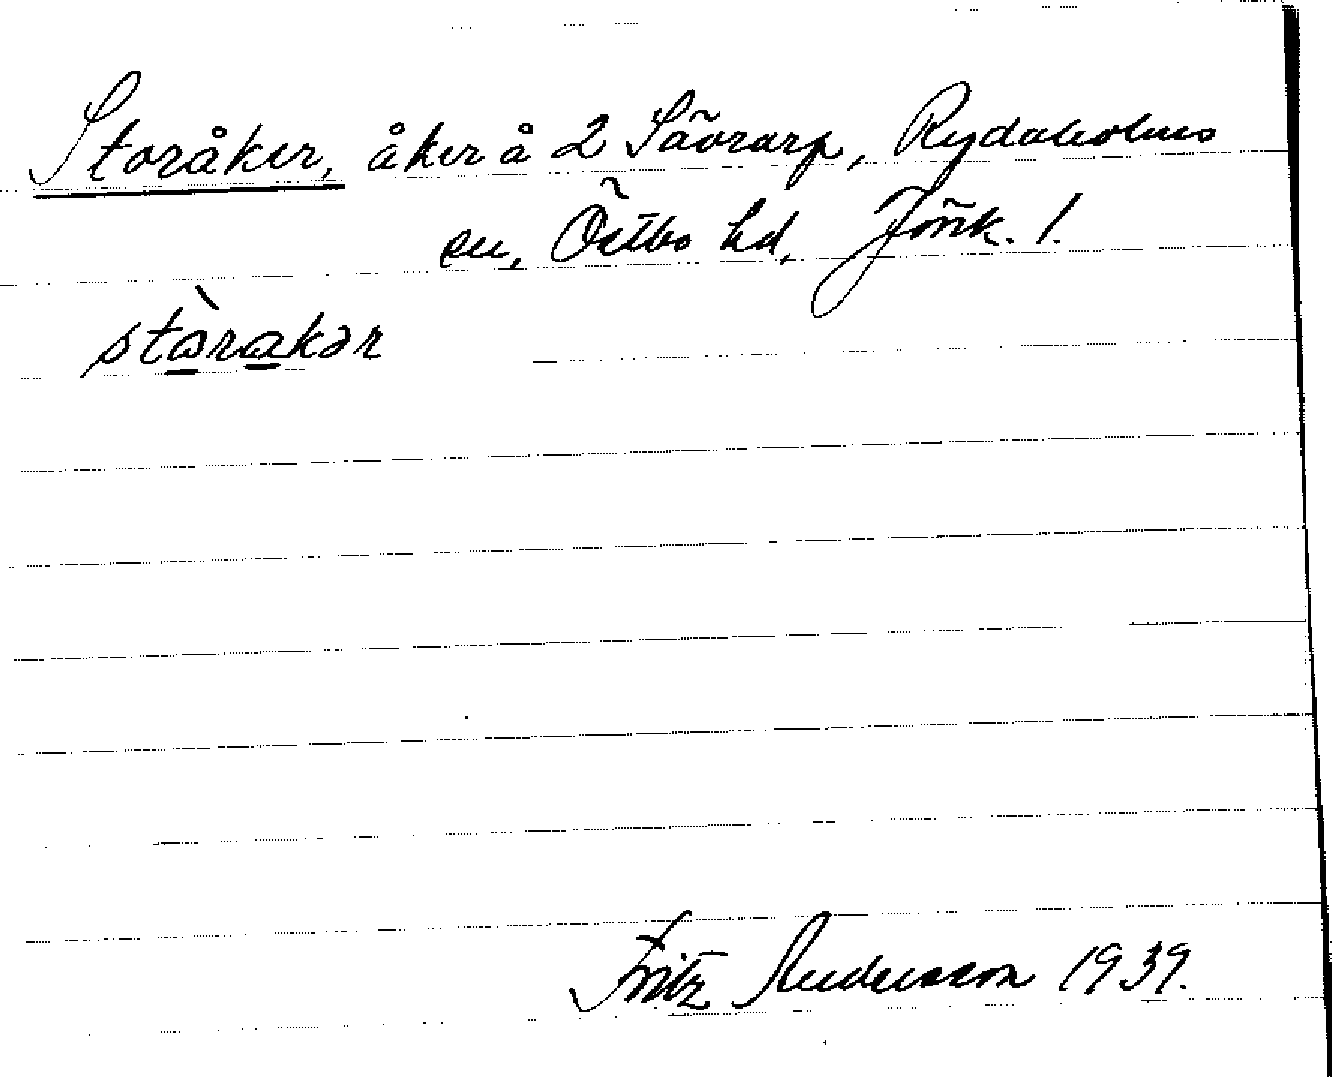 Storåker, åker å 2 Sävrarp, Rydaholms
sn, Östbo hd, Jönk. l.
stòrakər
Fritz Andersson 1939.